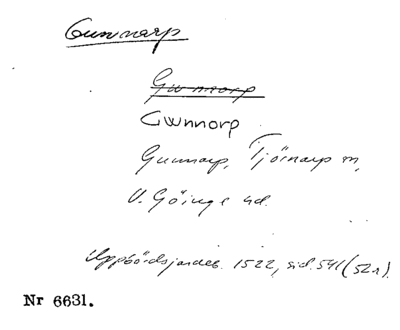 Gunnarp
Gwnnorp
Gwnnorp
Gunnarp, Tjörnarp sn,
V. Göinge hd.
Uppbördsjordeb. 1522, sid. 541 (52r).
Nr 6631.